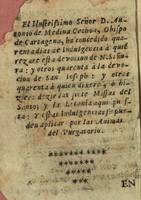 El Illustrissimo Señor D. An-
tonio de Medina Cachon, Obispo
de Cartagena, ha concedido qua-
renta dias de Indulgencia à quie
rezare esta devocion de N. Seño
ra: y otros quarenta à la devo-
cion de San Joseph: y otros
quarenta à quien dixere, ò hi-
ziere dezir las siete Missas del
Santo; y la Letania aqui pu-
esta: Y estas Indulgencias se
pueden aplicar por las Animas
del Purgatorio.
EN